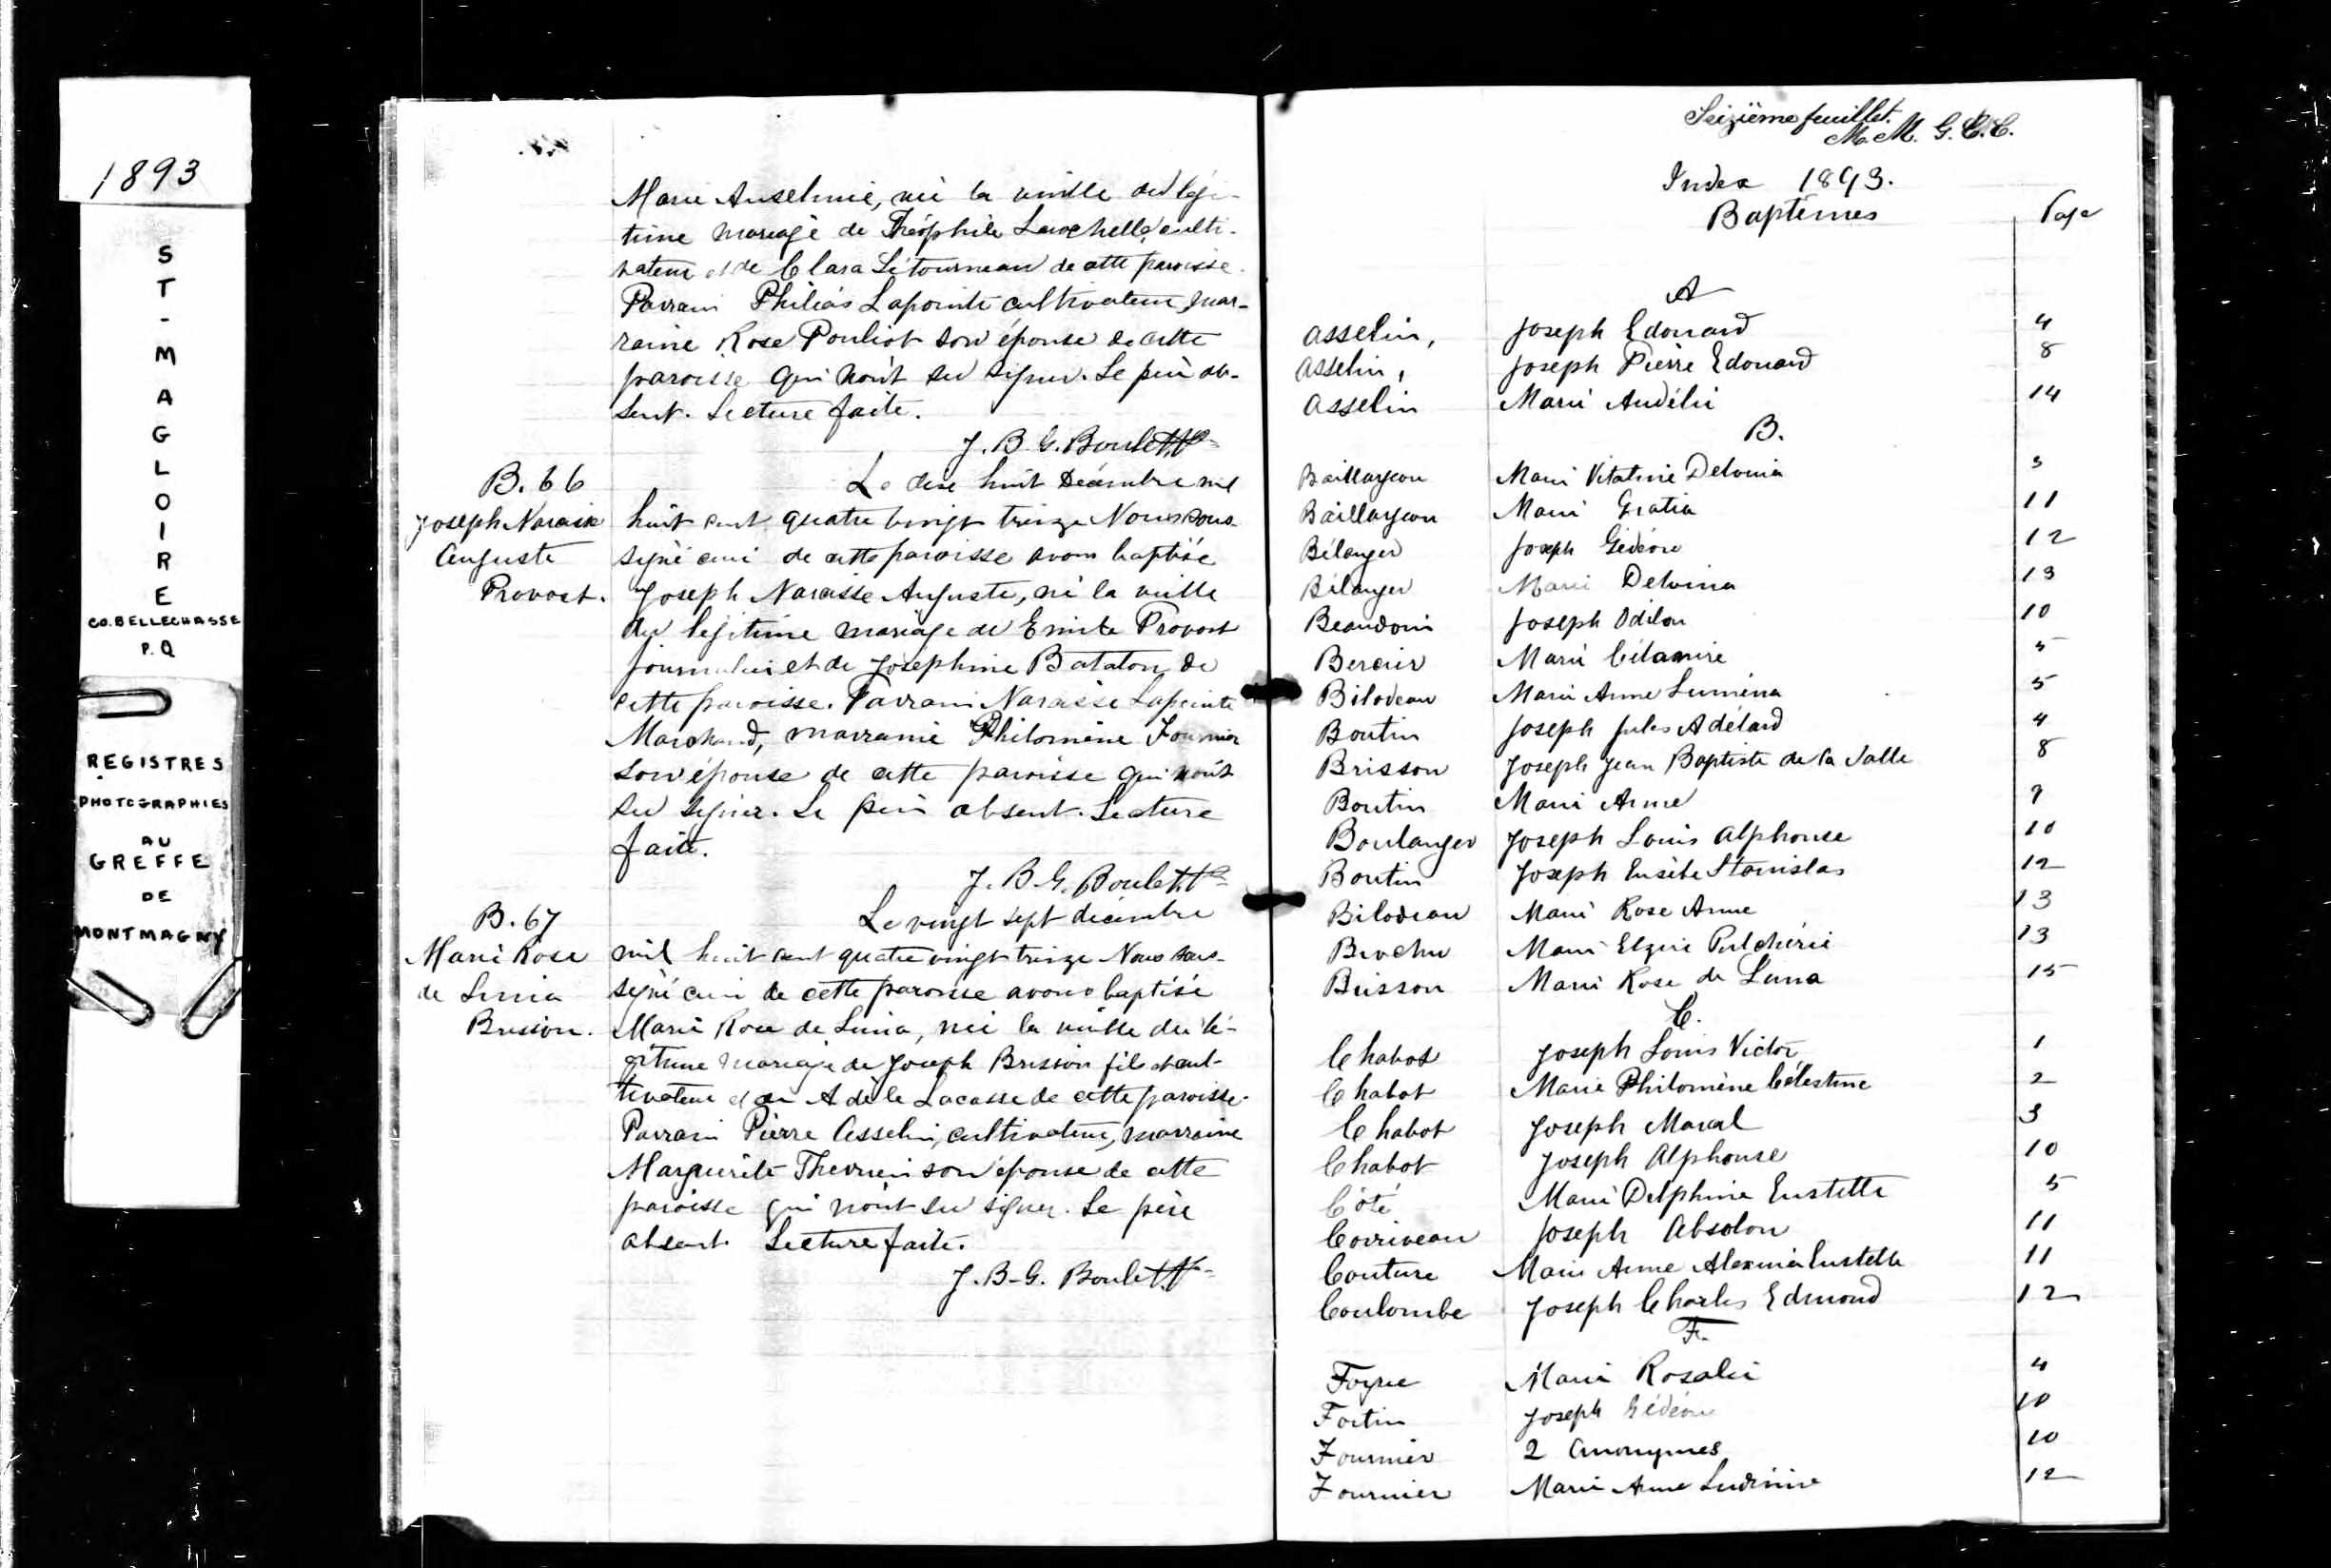 1893
ST-MAGLOIRE
CO. BELLECHASSE
P.Q
REGISTRES
PHOTOGRAPHIES
AU
GREFFE
DE
MONTMAGNY
Marie Anselmie, née la veille du légi-
time mariage de Théophile Larochelle culti-
vateur et de Clara Létourneau de cette paroisse.
Parrain Philéas Lapointe cultivateur, mar-
raine Rose Pouliot son épouse de cette
paroisse qui n'ont su signer. Le père ab-
sent. Lecture faite.
J. B. G. Boulet Ptre
B. 66
Joseph Narcisse
Auguste
Provost.
Le dix huit Décembre mil
huit cent quatre vingt treize Nous sous-
signé curé de cette paroisse avons baptisé
Joseph Narcisse Auguste, né la veille
du légitime mariage de Emile Provost
journalier et de Josephine Bataton de
cette paroisse. Parrain Narcisse Lapointe
Marchand, marraine Philomène Fournier
son épouse de cette paroisse qui n'ont
su signer. Le père absent. Lecture
faite.
J. B. G. Boulet Ptre
B. 67
Marie Rose
de Lima
Brisson.
Le vingt sept décembre
mil huit cent quatre vingt treize Nous sous-
signé curé de cette paroisse avons baptisé
Marie Rose de Lima, née la veille du lé-
gitime mariage de Joseph Brisson fils cul-
tivateur et de Adèle Lacasse de cette paroisse.
Parrain Pierre Asselin, cultivateur, marraine
Marguerite Therrien son épouse de cette
paroisse qui n'ont su signer. Le père
absent. Lecture faite.
J. B. G. Boulet Ptre
Seizième feuillet.
M. M. G. C. C.
Index 1893.
Baptêmes Page
A
Asselin, Joseph Edouard 4
Asselin, Joseph Pierre Edouard 8
Asselin Marie Audélie 14
B.
Baillargeon Marie Vitaline Delvina 3
Baillargeon Marie Gratia 11
Bélanger Joseph Gédéon 12
Bélanger Marie Delvina 13
Beaudoin Joseph Odilon 10
Bercier Marie Célanire 5
Bilodeau Marie Anne Luména 5
Boutin Joseph Jules Adélard 4
Brisson Joseph Jean Baptiste de la Salle 8
Boutin Marie Anne 9
Boulanger Joseph Louis Alphonse 10
Boutin Joseph Eusèbe Stanislas 12
Bilodeau Marie Rose Anne 13
Brochu Marie Elzire Pulchérie 13
Brisson Marie Rose de Lima 15
C.
Chabot Joseph Louis Victor 1
Chabot Marie Philomène Célestine 2
Chabot Joseph Marcel 3
Chabot Joseph Alphonse 10
Côté Marie Delphine Eustelle 5
Corriveau Joseph Absolon 11
Couture Marie Anne Alexina Eustelle 11
Coulombe Joseph Charles Edmond 12
F.
Marie Rosalie 4
Fortin Joseph Gédéon 10
Fournier 2 Anonymes 10
Fournier Marie Anne 12